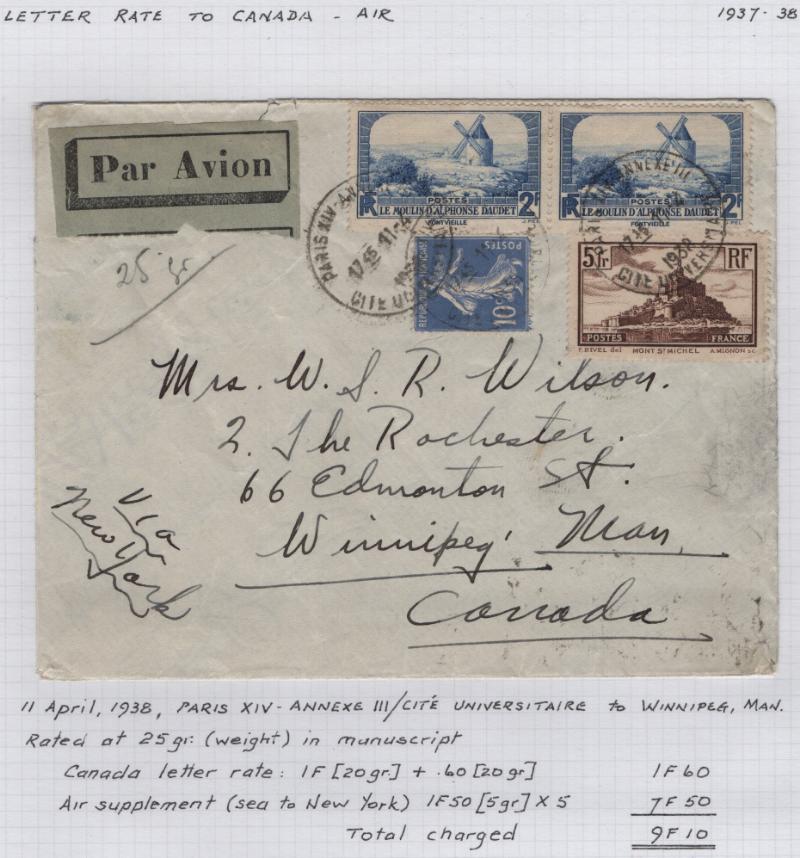 LETTER RATE TO CANADA - AIR 1937-38
Par Avion
25 gr
POSTES
LE MOULIN D'ALPHONSE DAUDET
FONTVIEILLE
RF 2F
POSTES
LE MOULIN D'ALPHONSE DAUDET
FONTVIEILLE
RF 2F
PARIS XIV-AN
17 45 11-4
1938
CITE UNIVER
PARIS XIV ANNEXE III
17 45
1938
CITE UNIVERS
POSTES
10
5fr RF
POSTES FRANCE
MONT ST MICHEL
Mrs. W. S. R. Wilson.
2. The Rochester.
66 Edmonton St.
Winnipeg Man.
Canada
Via
New York
11 April, 1938, PARIS XIV - ANNEXE III/CITÉ UNIVERSITAIRE to WINNIPEG, MAN.
Rated at 25gr. (weight) in manuscript
Canada letter rate: 1F [20gr.] + .60 [20gr] 1F60
Air supplement (sea to New York) 1F50 [5gr] X 5 7F50
Total charged 9F10